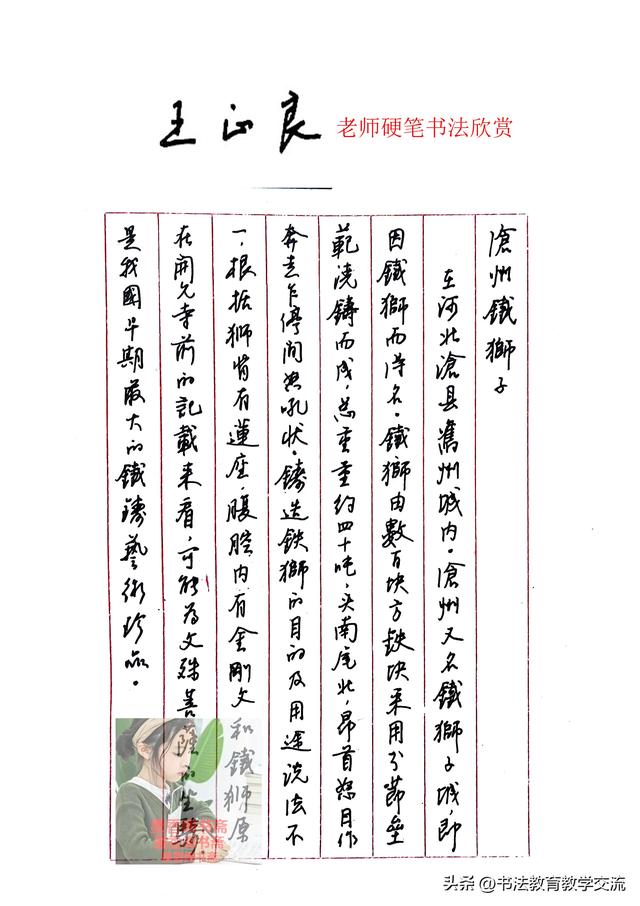 王正良 老师硬笔书法欣赏
滄州鐵獅子
在河北滄县舊州城内。滄州又名鐵獅子城,即
因鐵獅而得名。鐵獅由數百块方鉄块采用分節壘
範澆鑄而成,总重量约四十吨,头南尾北,昂首怒目作
奔走乍停间怒吼状。鑄造鉄獅的目的及用途说法不
一,根据獅背有蓮座,腹腔内有金剛文和鐵獅原
在開元寺前的記載来看,可能为文殊菩薩的坐騎,
是我國早期最大的鐵鑄藝術珍品。
头条 @书法教育教学交流